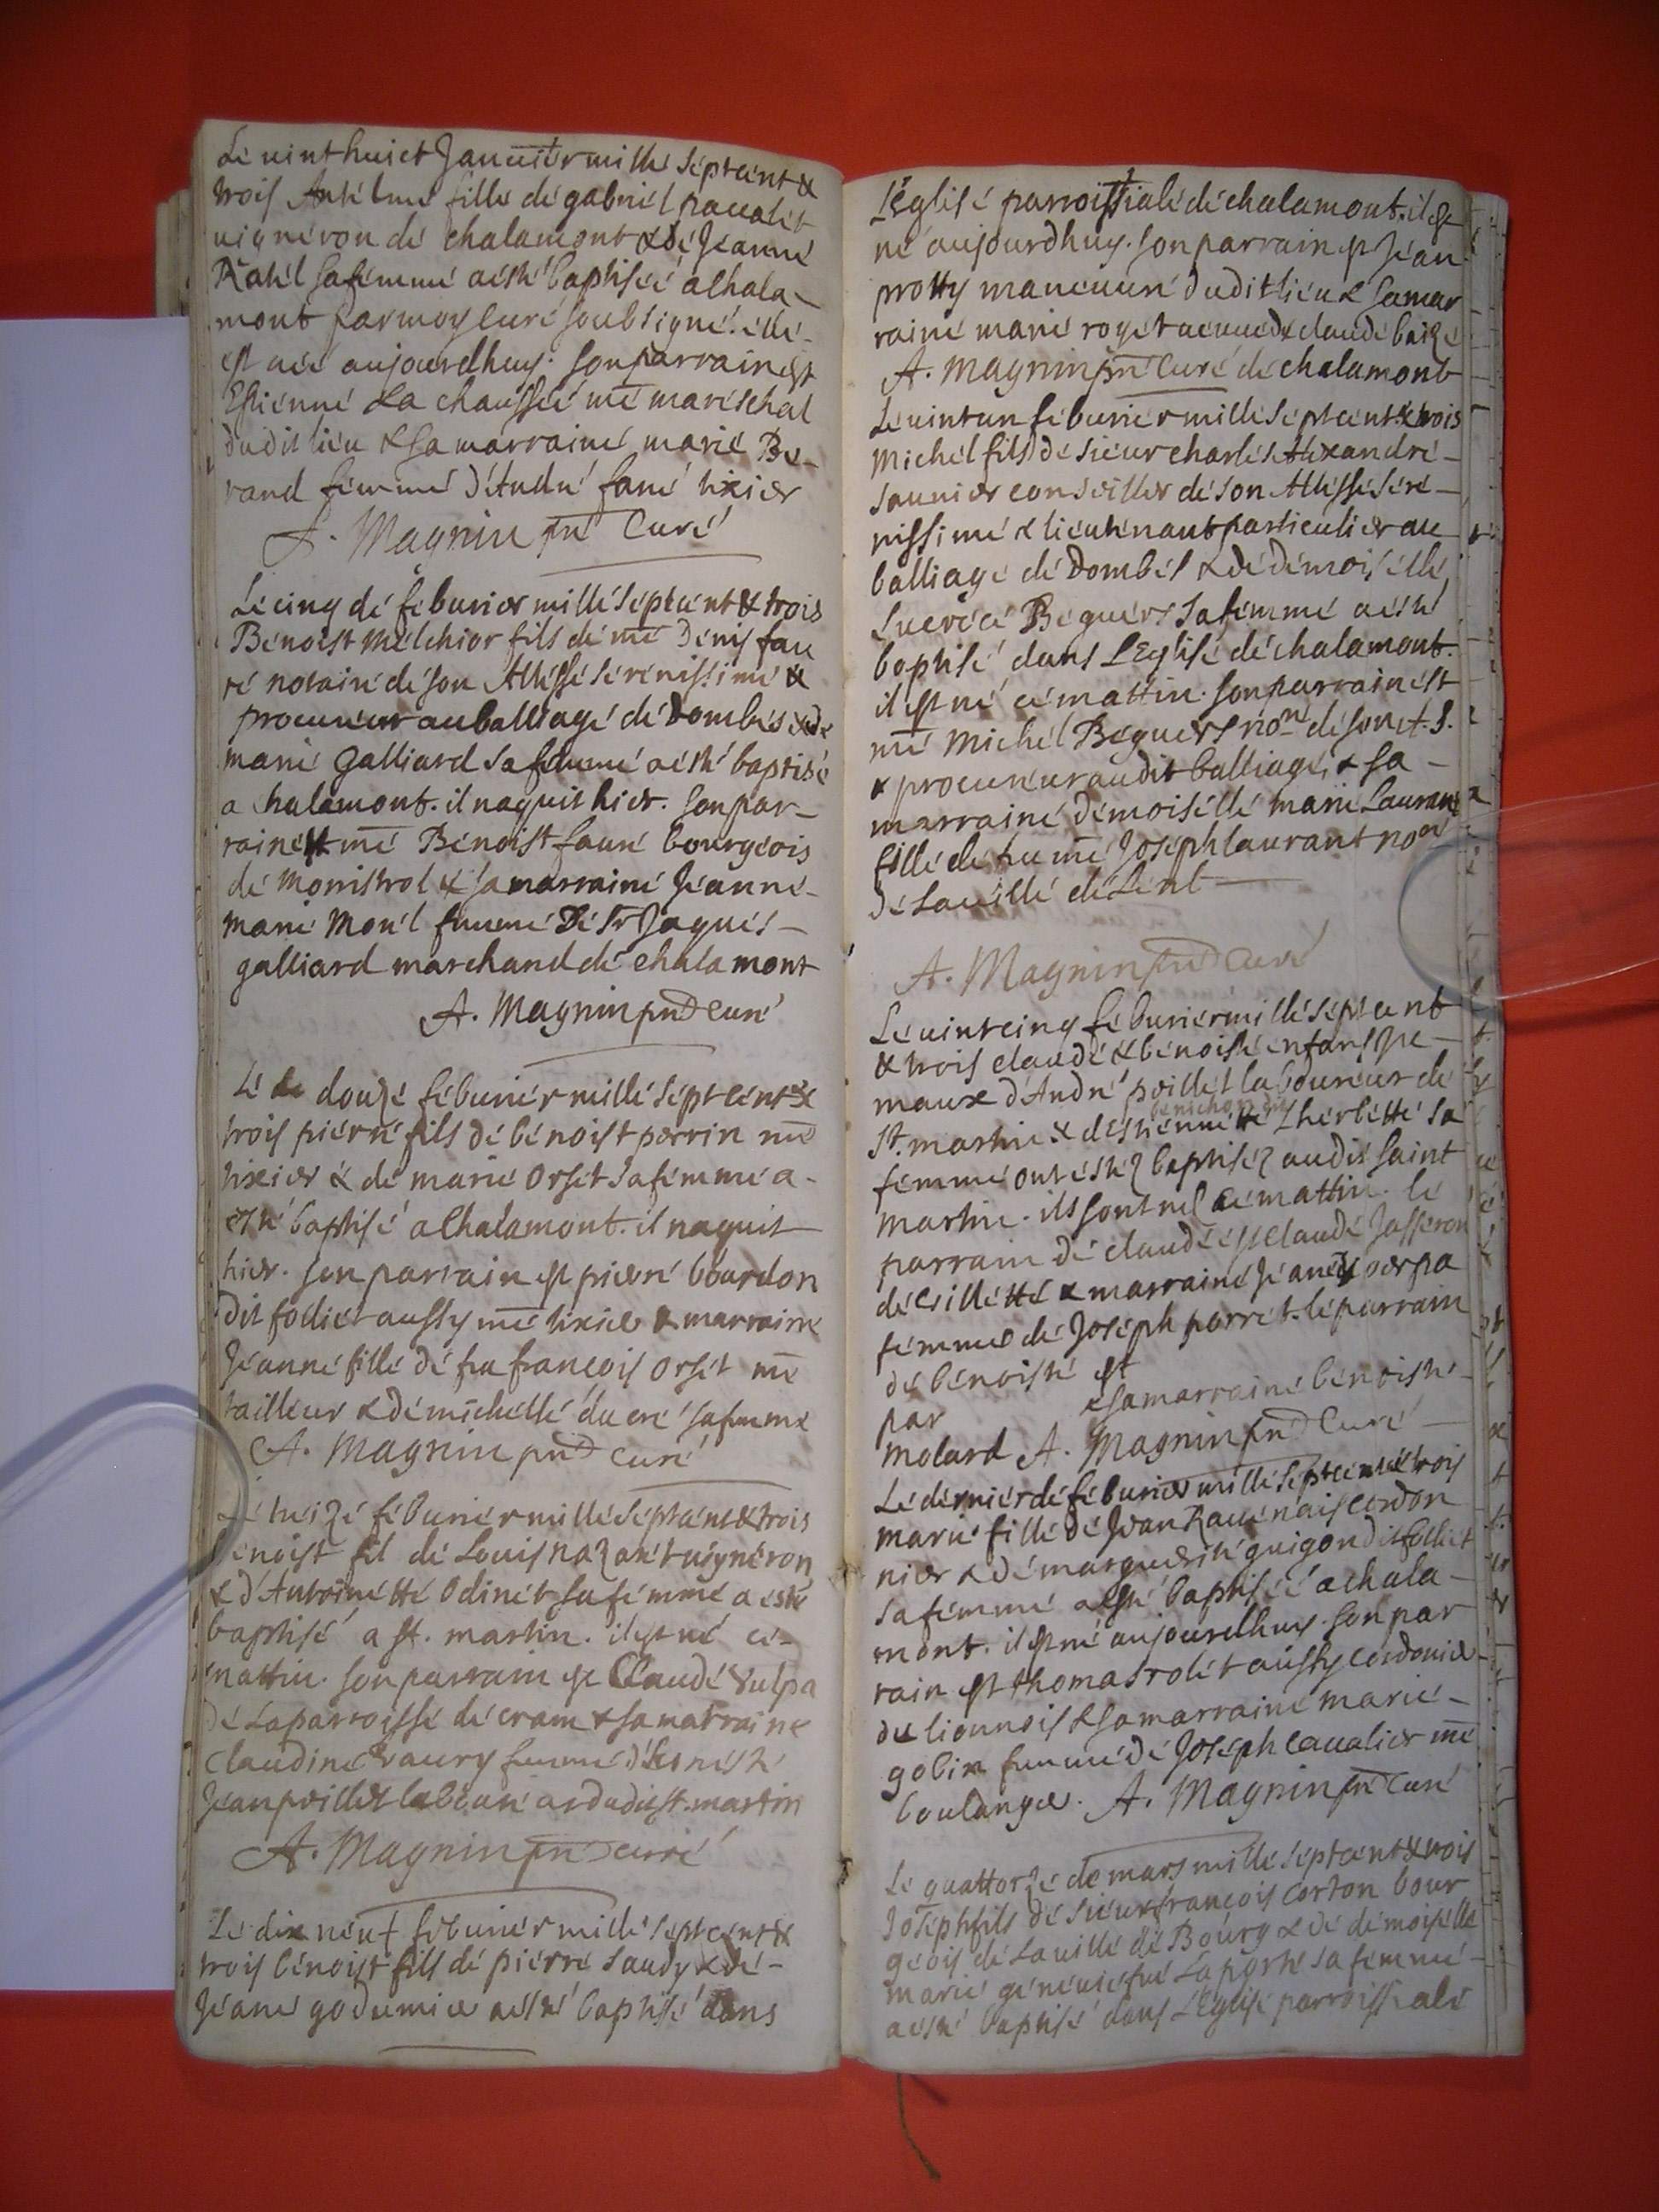 Le vint huict Januier mille septcent &
trois Antelme fille de gabriel pacalet
uigneron de chalamont & de Jeanne
Ratel sa femme a esté baptisée a Chala-
mont par moy curé soubsigné. elle
est née aujourdhuy. son parrain est
Estienne La chaussée me mareschal
dudit lieu & sa marraine marie Be-
rand femme d'André fauré tixier
A. Magnin pre Curé
Le cinq de feburier mille septcent & trois
Benoist Melchior fils de me Denis fau
re notaire de son Altesse serenissime &
procureur au balliage de Dombes & de
marie Galliard sa femme a esté baptisé
a Chalamont. il naquit hier. son par-
rain est me Benoist faure bourgeois
de Monistrol & sa marraine Jeanne-
marie Morel femme De Sr Jaques-
galliard marchand de chalamont
A. Magnin pre Curé
Le douze feburier mille septcent &
trois pierre fils de benoist perrin me
tixier & de marie Orset sa femme a-
esté baptisé a Chalamont. il naquit
hier. son parrain est pierre bourdon
dit folliet aussy me tixier & marraine
Jeanne fille de feu françois Orset me
tailleur & de michelle ducré sa femme
A. Magnin pre curé
Le treize feburier mille septcent & trois
benoist fil de Louis nazaret uigneron
& d'Antoinette Odinet sa femme a esté
baptisé a St. martin. il est né ce-
mattin. son parrain est Claude Vulpa
de la parroisse de cram & sa marraine
Claudine Vaury femme d'honeste
Jean poillet laboureur dudit St. martin
A. Magnin pre curé
Le dix neuf feburier mille septcent &
trois benoist fils de pierre Saudy & de-
Jeane godumier a esté baptisé dans
L'église parroissiale de chalamont. il est
né aujourdhuy. son parrain est Jean
protty maneuure dudit lieu & sa mar
raine marie roget ueuue de claude baize
A. Magnin pre Curé de chalamont
Le uint un feburier mille septcent & trois
Michel fils de sieur charles Alexandre-
saunier conseiller de son Altesse sere-
nissime & lieutenant particulier au
balliage de Dombes & de demoiselle
Lucrece Beguers sa femme a esté
baptisé dans L'Eglise de chalamont.
il est né ce mattin. son parrain est
me Michel Beguers nore de son A. S.
& procureur audit balliage, & sa-
marraine demoiselle marie Laurant
fille de feu me Joseph laurant nore
de La uille de Lent
A. Magnin pre Curé
Le uint cinq feburier mille septcent
& trois claude & benoiste enfans ju-
maux d'André poillet laboureur de
benichon dit
St. martin & d'Estiennette Lherbette sa
femme ont estez baptisez audit saint
martin. ils sont nes ce mattin. le
parrain de claude est Claude Jasseron
de Crillette & marraine Jeane uerpa
femme de Joseph perret. le parrain
de benoiste est
par & sa marraine benoiste-
molard A. Magnin pre Curé
Le dernier de feburier mille septcent & trois
marie fille de Jean Rauenais cordon
nier & de marguerite guigon dit folliet
sa femme a esté baptisée a chala-
mont. il est né aujourdhuy. son par
rain est thomas rolet aussy cordonier
de lionnois & sa marraine marie-
gobix femme de Joseph caualier me
boulanger. A. Magnin pre Curé
Le quattorze de mars mille septcent & trois
Joseph fils de sieur françois Corton bour
geois de La uille de Bourg & de demoiselle
marie geneuiefue Laporte sa femme-
a esté baptisé dans L'Eglise parroissiale